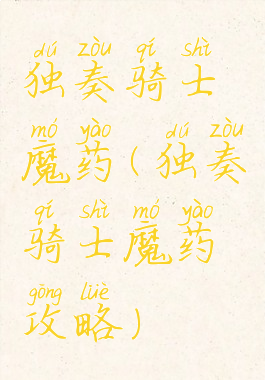 dú zòu qí shì
独奏骑士
mó yào dú zòu
魔药(独奏
qí shì mó yào
骑士魔药
gōng lüè
攻略)